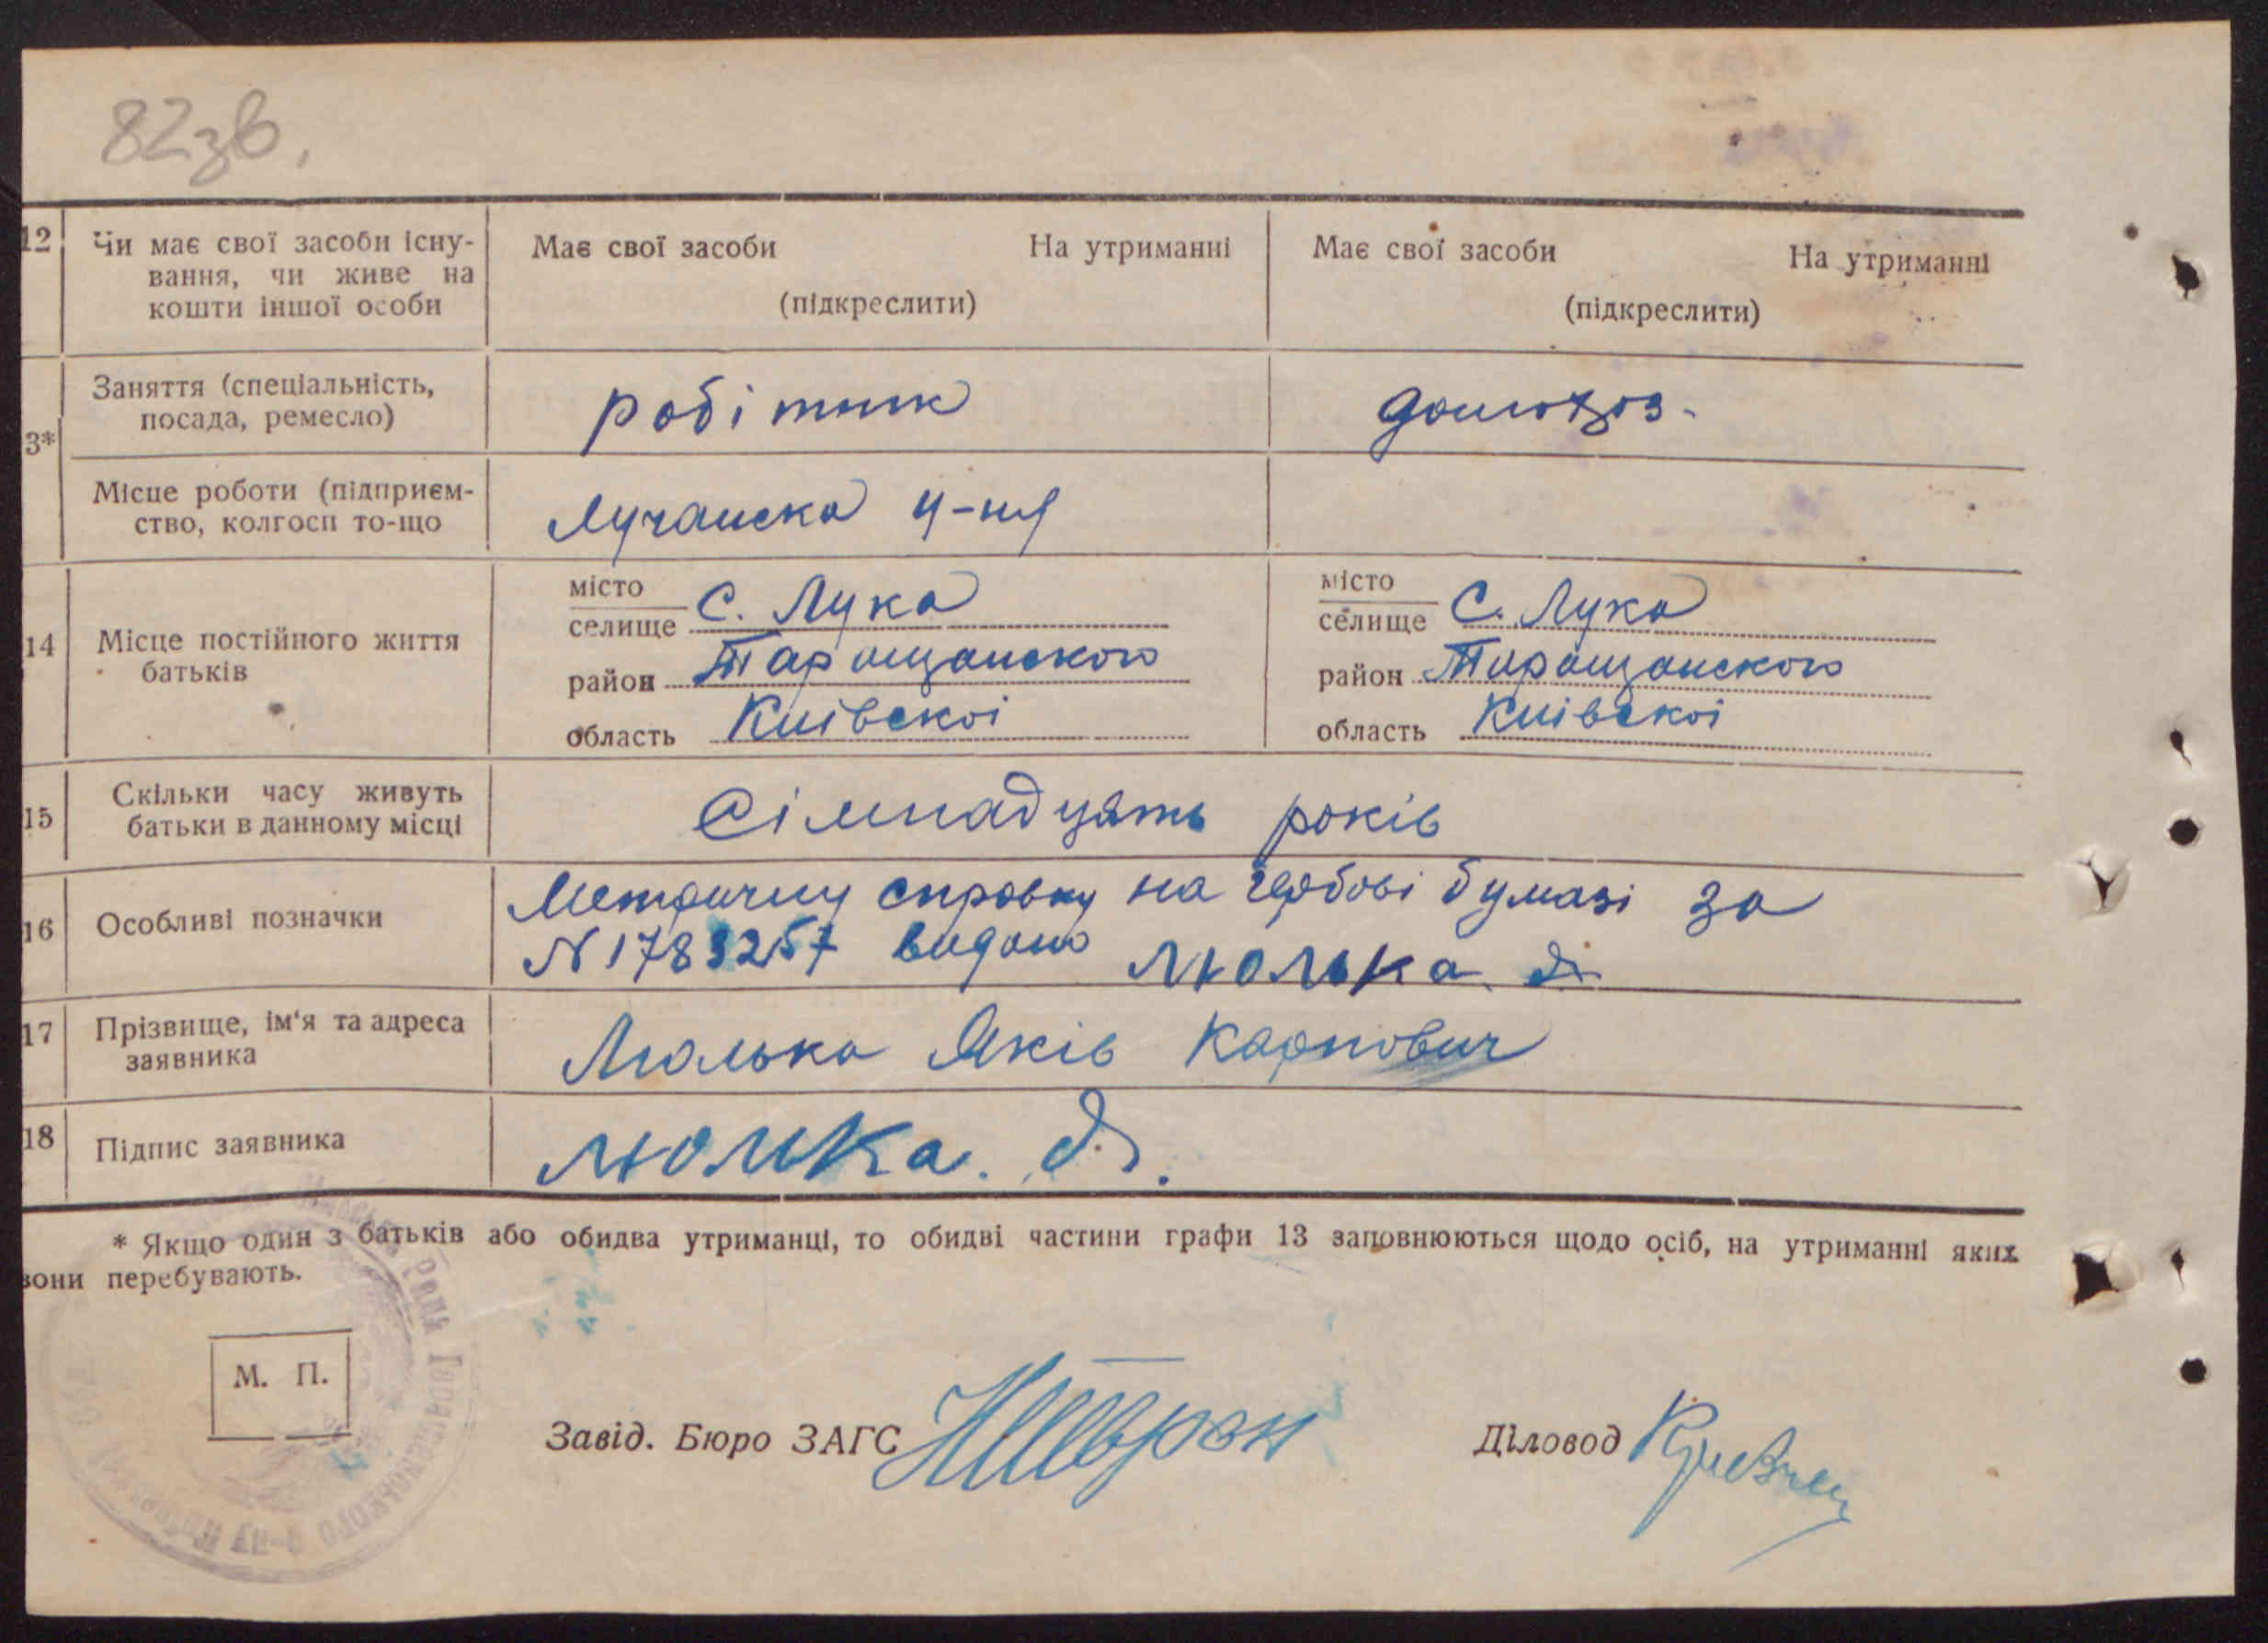 82зв.
12 Чи має свої засоби існу-
вання, чи живе на
кошти іншої особи
Має свої засоби На утриманні
(підкреслити)
Має свої засоби На утриманні
(підкреслити)
3*
Заняття (спеціальність,
посада, ремесло)
робітник
домохоз.
Місце роботи (підприєм-
ство, колгосп то-що
Лучанска ц-ня
14 Місце постійного життя
батьків
місто
селище С. Лука
район Таращанского
область Киівскоі
місто
селище С. Лука
район Таращанского
область Киівскоі
15 Скільки часу живуть
батьки в данному місці
Сімнадцять років
16 Особливі позначки
Метричну справку на гербові бумазі за
N 1783257 видано Люлька
17 Прізвище, ім'я та адреса
заявника
Люлька Яків Карпович
18 Підпис заявника
Люлька. Я.
* Якщо один з батьків або обидва утриманці, то обидві частини графи 13 заповнюються щодо осіб, на утриманні яких
вони перебувають.
М. П.
Завід. Бюро ЗАГС
Діловод